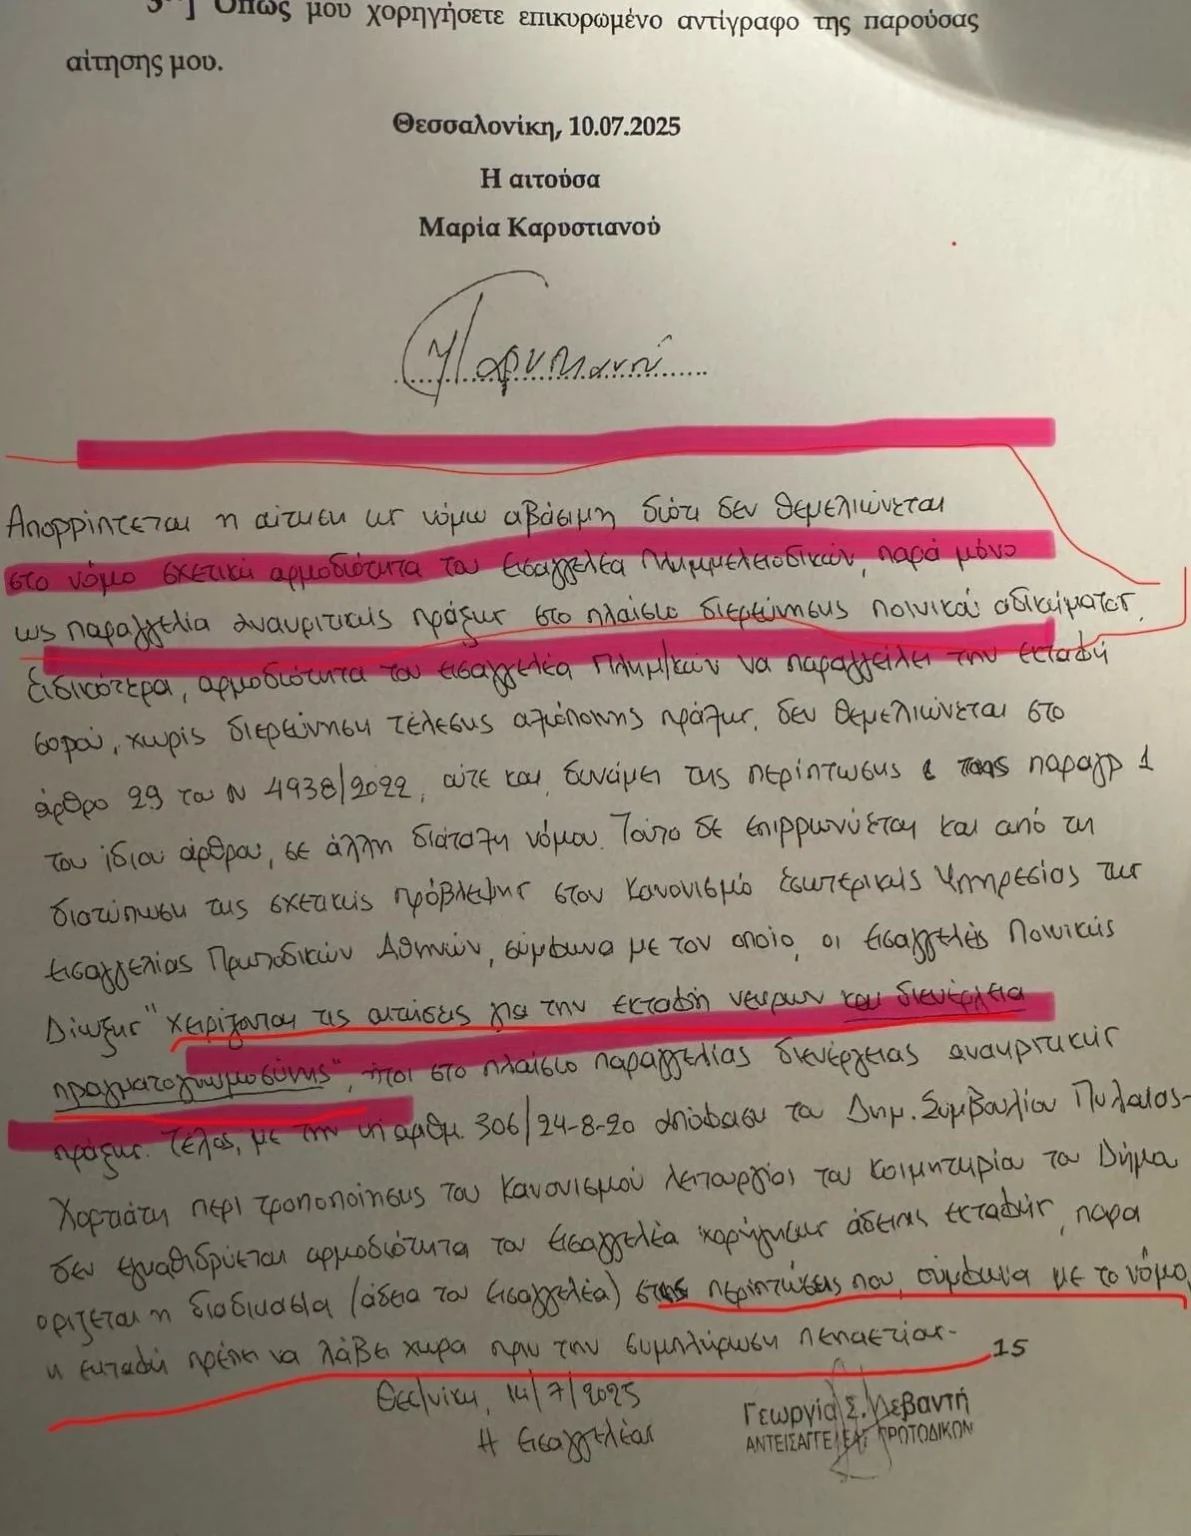 3ον] Όπως μου χορηγήσετε επικυρωμένο αντίγραφο της παρούσας
αίτησης μου.
Θεσσαλονίκη, 10.07.2025
Η αιτούσα
Μαρία Καρυστιανού
Καρυστιανού
Απορρίπτεται η αίτηση ως νόμω αβάσιμη διότι δεν θεμελιώνεται
στο νόμο σχετική αρμοδιότητα του Εισαγγελέα Πλημμελειοδικών, παρά μόνο
ως παραγγελία ανακριτικής πράξης στο πλαίσιο διερεύνησης ποινικού αδικήματος.
Ειδικότερα, αρμοδιότητα του εισαγγελέα Πλημ/κών να παραγγείλει την εκταφή
σορού, χωρίς διερεύνηση τέλεσης αξιόποινης πράξης, δεν θεμελιώνεται στο
άρθρο 29 του Ν 4938/2022, ούτε και, δυνάμει της περίπτωσης ι της παραγρ 1
του ίδιου άρθρου, σε άλλη διάταξη νόμου. Τούτο δε επιρρωνύεται και από τη
διατύπωση της σχετικής πρόβλεψης στον Κανονισμό Εσωτερικής Υπηρεσίας της
Εισαγγελίας Πρωτοδικών Αθηνών, σύμφωνα με τον οποίο, οι Εισαγγελείς Ποινικής
Δίωξης "χειρίζονται τις αιτήσεις για την εκταφή νεκρών και διενέργεια
πραγματογνωμοσύνης", ήτοι στο πλαίσιο παραγγελίας διενέργειας ανακριτικής
πράξης. Τέλος, με την υπ αριθμ. 306/24-8-20 απόφαση του Δημ. Συμβουλίου Πυλαίας-
Χορτιάτη περί τροποποίησης του κανονισμού λειτουργίας του κοιμητηρίου του Δήμου
δεν εγκαθιδρύεται αρμοδιότητα του Εισαγγελέα χορήγησης άδειας εκταφής, παρά
ορίζεται η διαδικασία (άδεια του Εισαγγελέα) στις περιπτώσεις που, σύμφωνα με το νόμο,
η εκταφή πρέπει να λάβει χώρα πριν την συμπλήρωση πενταετίας-
15
Θεσ/νίκη, 14/7/2025
Η Εισαγγελέας
Γεωργία Σ. Λεβαντή
ΑΝΤΕΙΣΑΓΓΕΛΕΑΣ ΠΡΩΤΟΔΙΚΩΝ